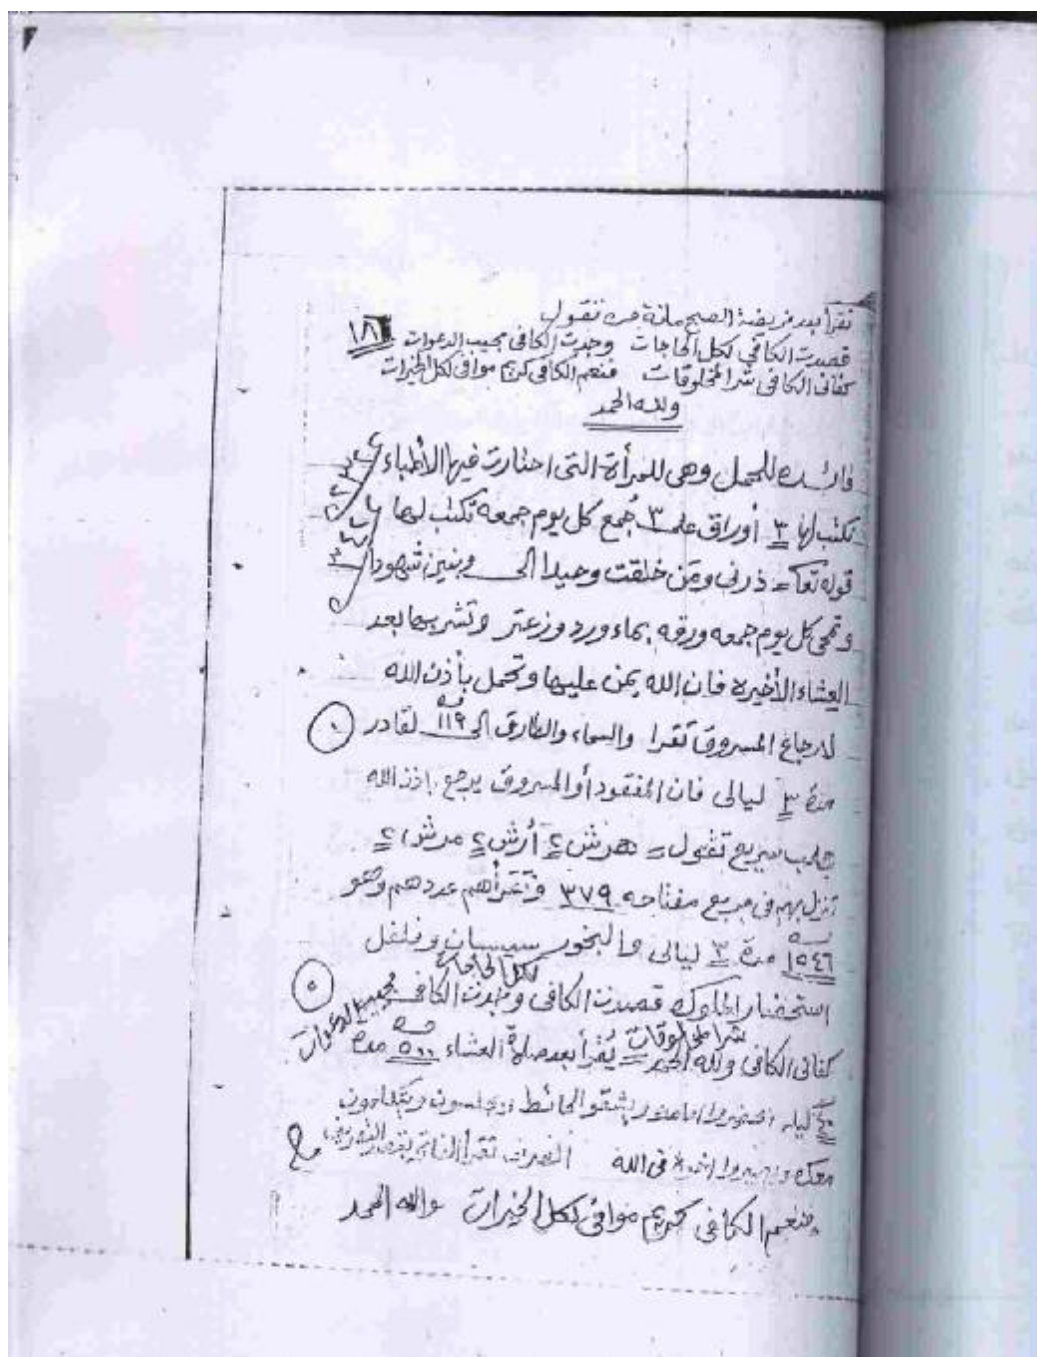 تقرأ بعد فريضة الصبح مائة مره تقول
قصدت الكافي لكل الحاجات وجدت الكافي مجيب الدعوات
كفاني الكافي شر المخلوقات فنعم الكافي كريم موافي لكل الخيرات
ولله الحمد
فائده للحمل وهى للمرأة التى احتارت فيها الأطباء
تكتب لها ٣ أوراق على ٣ جُمع كل يوم جمعه تكتب لها
قوله تعالى ذرنى ومَن خلقت وحيدا الى وبنين شهودا
وتمحى كل يوم جمعه ورقه بماء ورد وزعتر وتشربها بعد
العشاء الأخيره فان الله يمن عليها وتحمل بأذن الله
لارجاع المسروق تقرا والسماء والطارق الى لقادر ١١٩
مدة ٣ ليالى فان المفقود أو المسروق يرجع باذن الله
جلب سريع تقول هرش ٢ أرش ٢ مرش ٢
تنزل بهم فى مربع مفتاحه ٣٧٩ وتقرأهم عددهم وهو
١٥٤٦ مدة ٣ ليالى والبخور سيسبان وفلفل
استحضار الملوك قصدت الكافى لكل الحاجات وجدت الكافى مجيب الدعوات
كفانى الكافى شر المخلوقات ولله الحمد يُقرأ بعد صلاة العشاء ٥٠٠ مدة
ليله الحائط ويجلسون ويتكلمون
معك فى الله تقرأ
فنعم الكافى كريم موافى لكل الخيرات ولله الحمد